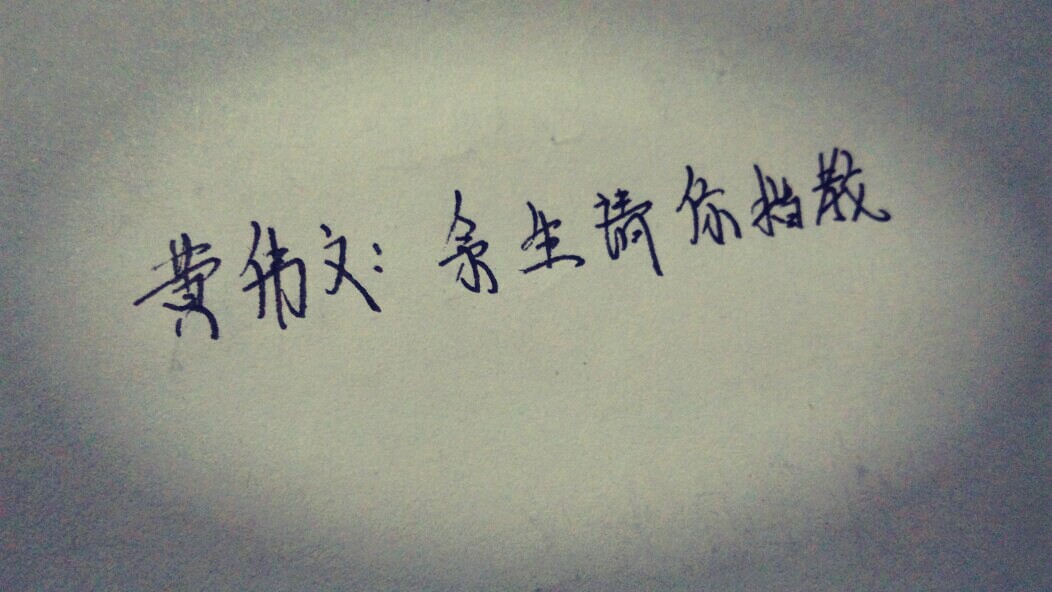 黄伟文:余生请你指教